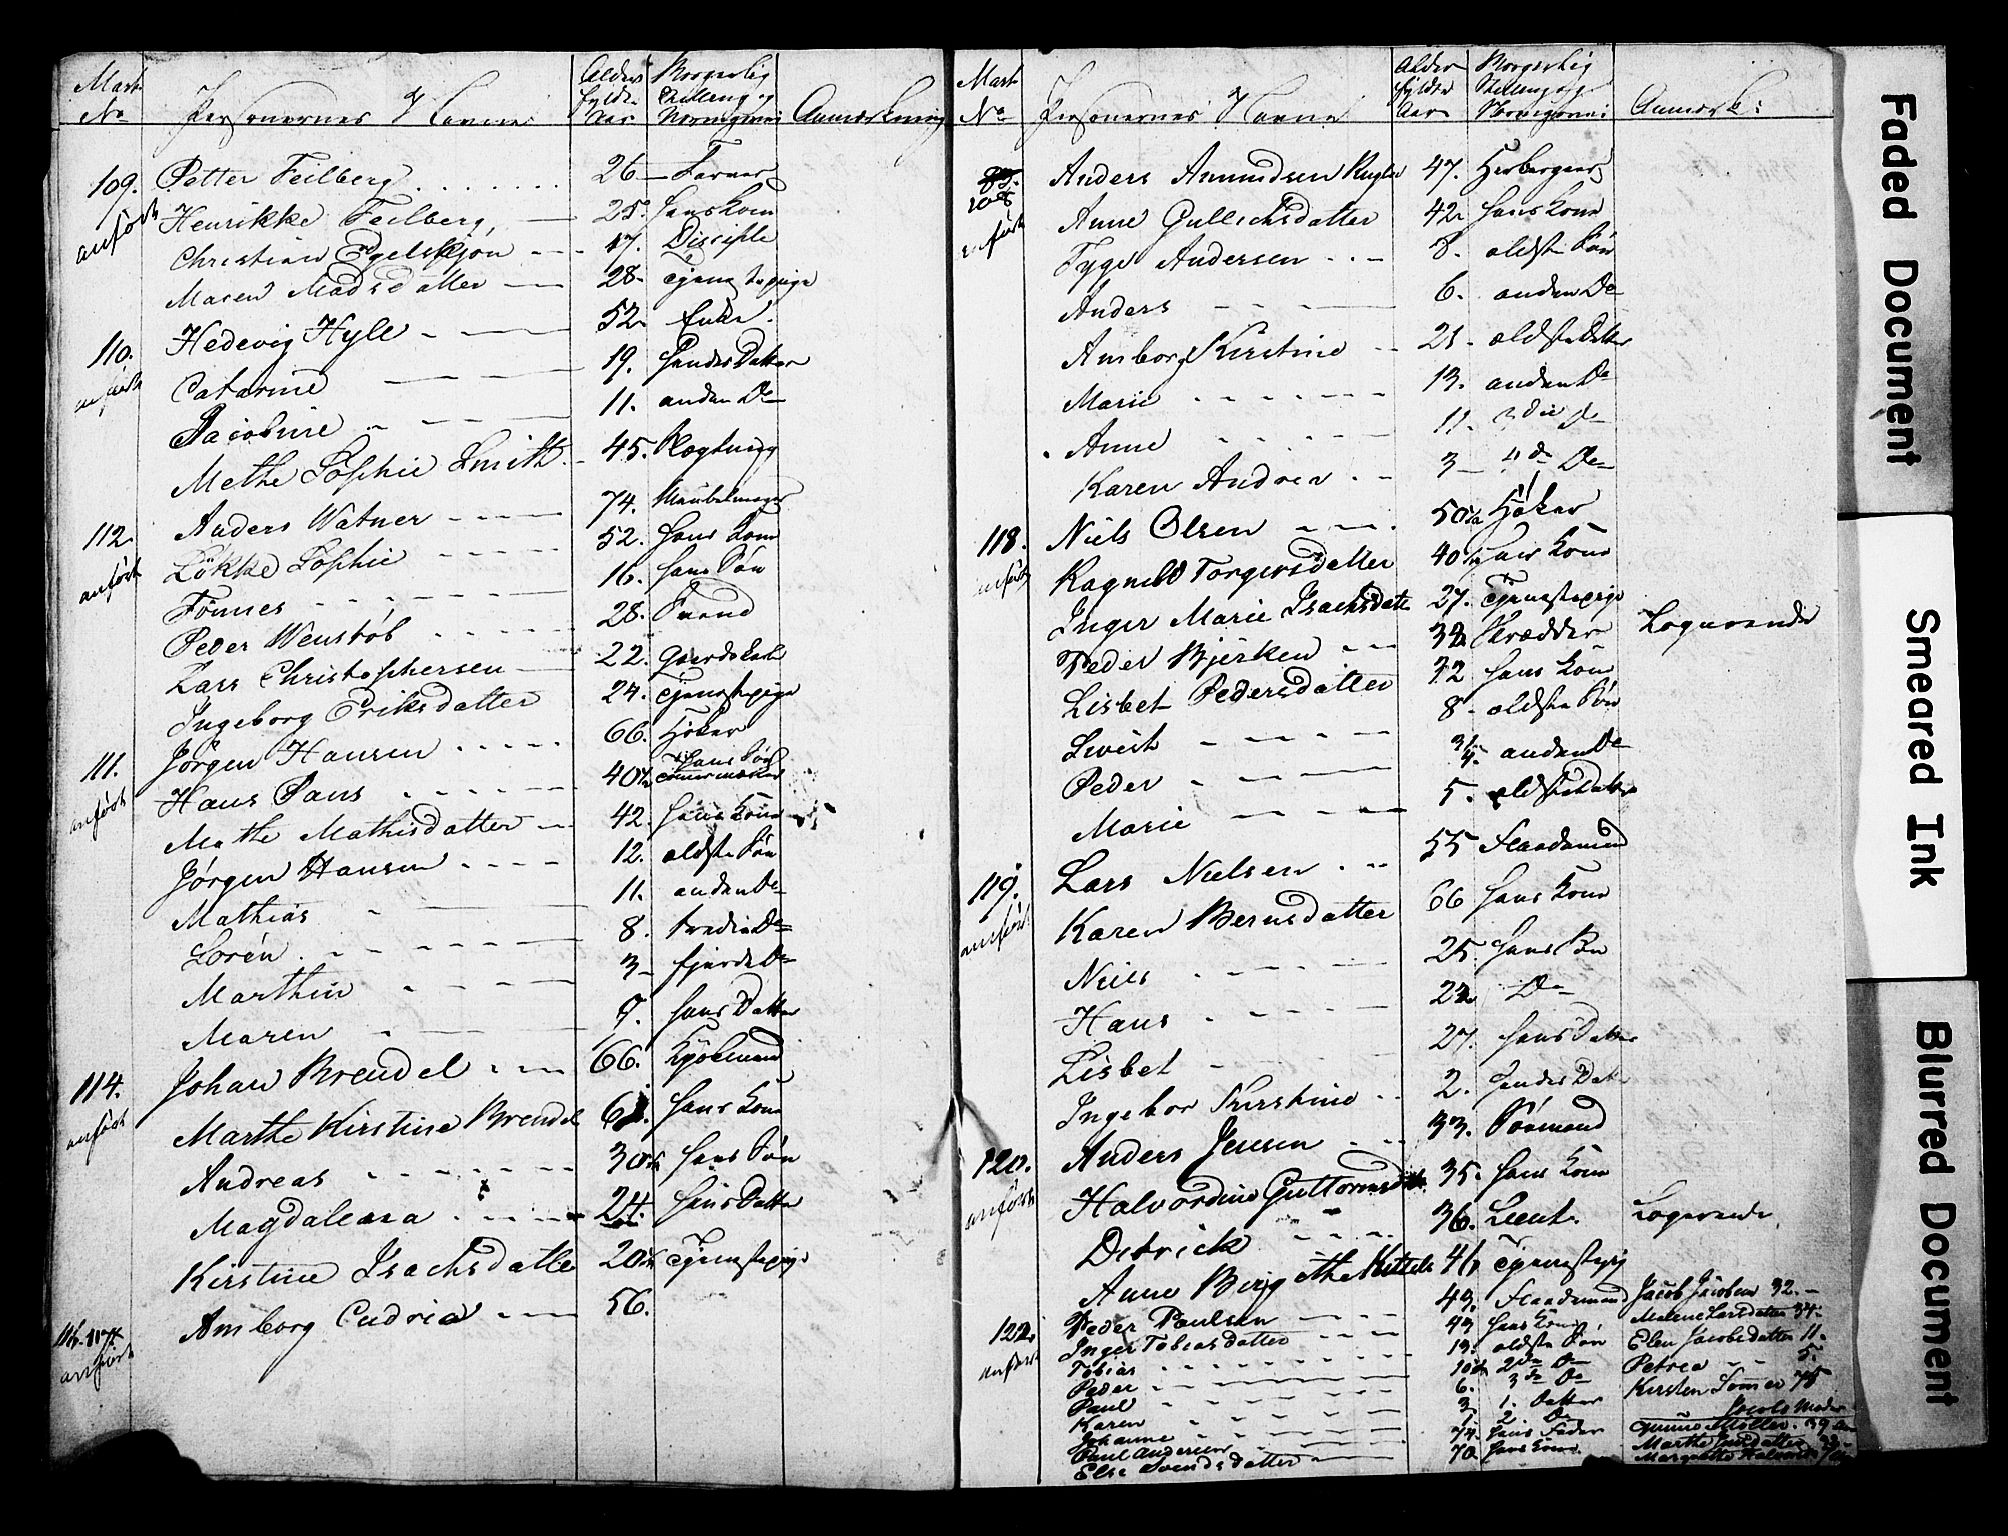 Mart. No
Personernes Navne
Alder fyldte Aar
Borgerlig Stilling og Næringsvei
Anmærkning
109. Petter Feilberg 26 Farver
anført Henrikke Feilberg 25 hans Kone
Christian Egelskjøn 17. Disciple
Maren Madsdatter 28. Tjenestepige
110. Hedevig Hyll 52 Enke.
anført Catarine 19. hendes Datter
Jacobine 11. anden Do
Methe Sophie Smith 45. Slægtning
112. Anders Watner 74. Meubelmager
anført Løkke Sophie 52. hans Kone
Tønnes 16. hans Søn
Peder Wenstøb 28. Svend
Lars Christophersen 22. Gaardskarl
Ingeborg Eriksdatter 24. Tjenestepige
111. Jørgen Hansen 66. Høker
anført Hans Pans 40 hans Søn
Mathe Mathisdatter 42. hans Kone
Jørgen Hansen 12. ældste Søn
Mathias 11. anden Do
Sorén 8. tredie Do
Marthin 3 fjerde Do
Maren 9. hans Datter
114. Johan Brendel 66. Kjøbmand
anført Marthe Kirstine Brendel hans Kone
Andreas 30 hans Søn
Magdalena 24. hans Datter
Kirstine Isachsdatter 20 Tjenestepige
Amborg Cudria 56.
anført
Mart No
Personernes Navne
Alder fyldte Aar
Borgerlig Stilling og Næringsvei:
Anmærk:
108 Anders Amundsen 47. Herbergeer
anført Anne Gullichsdatter 42 hans Kone
Tyge Andersen 8. ældste Søn
Anders 6. anden Do
Amborg Kirstine 21 ældste Datter
Marie 13. anden Do
Anne 11. 3die Do
Karen Andrea 3 4de Do
118. Niels Olsen 50 Høker
anført Ragnild Torgersdatter 40 hans Kone
Inger Marie Isachsdatt 27. Tjenestepige
Peder Bjerken 32 Skrædder Logerende
Lisbet Pedersdatter 32 hans Kone
Sivert 8 ældste Søn
Peder anden Do
Marie 5. ældste Datter
119. Lars Nielsen 55 Flaademand
anført Karen Bernsdatter 66 hans Kone
Niels 25 hans Søn
Hans 22 Do
Lisbet 27. hans Datter
Ingebor Kirstine 2. hendes Dat
120. Anders Jensen 33. Sømand
anført Halvordine Guttormsdatt 35. hans Kone
Ditrick 36. Lieut. Logerende
Anne Birgithe Kittels 41 Tjenestepig
122. Peder Paulsen 49. Flaademand Jacob Jacobsen 32.
anført Inger Tobiasdatter 49 hans Kone Malene Larsdatter 34.
Tobias 13. ældste Søn Elen Jacobsdatter 11.
Peder 10 2de Do Petrea 5.
Paul 6. 3de Do Kirsten Sommer 75
Karen 3 1. Datter Jacobs Moder
Johanne 1. 2 Do
Paul Andersen 74. hans Fader
Else Svendsdatter 70. hans Kone
Faded Document
Smeared Ink
Blurred Document